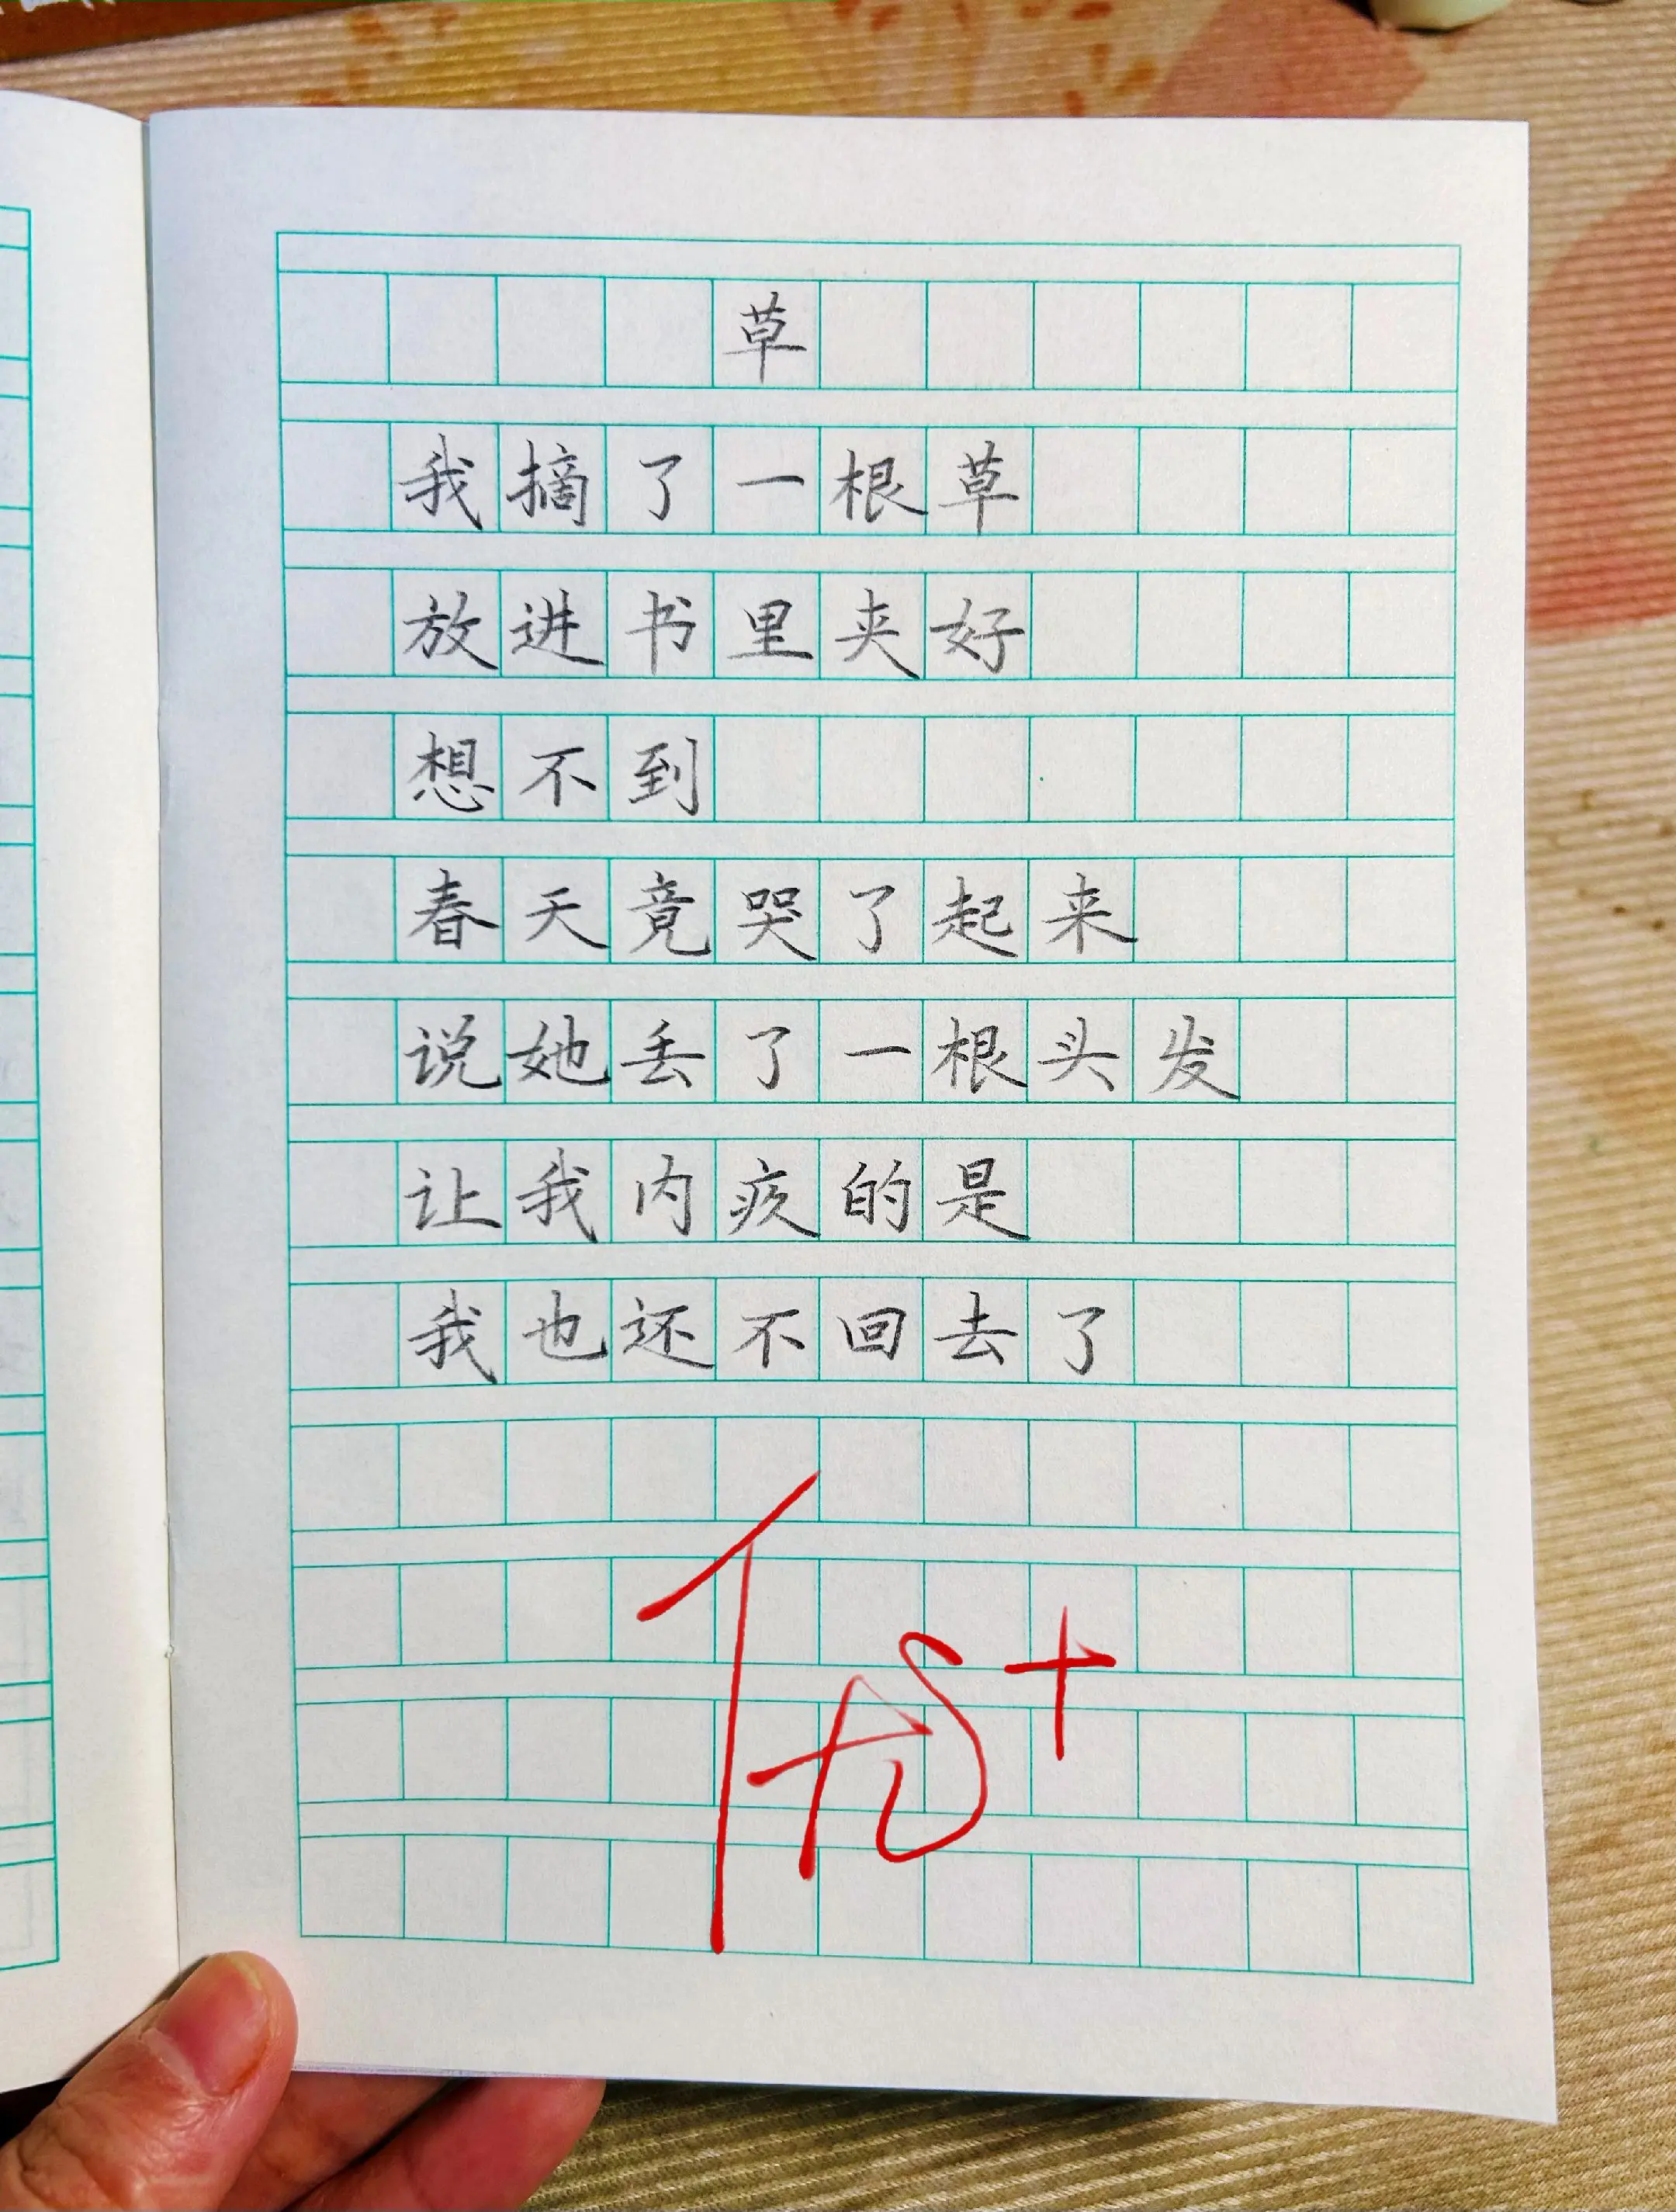 草
我摘了一根草
放进书里夹好
想不到
春天竟哭了起来
说她丢了一根头发
让我内疚的是
我也还不回去了
优+